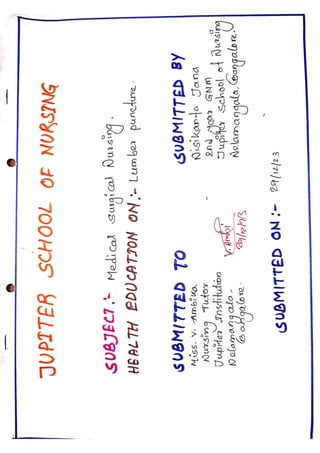 JUPITER SCHOOL OF NURSING
SUBJECT:- Medical surgical Nursing.
HEALTH EDUCATION ON:- Lumber puncture.
SUBMITTED TO
Miss. V. Ambika
Nursing Tutor
Jupiter Institution
Nelamangala.
Bangalore.
29/12/23
SUBMITTED BY
Nisikanta Jana
2nd year GNM
Jupiter School of Nursing
Nelamangala. Bangalore.
SUBMITTED ON:- 29/12/23